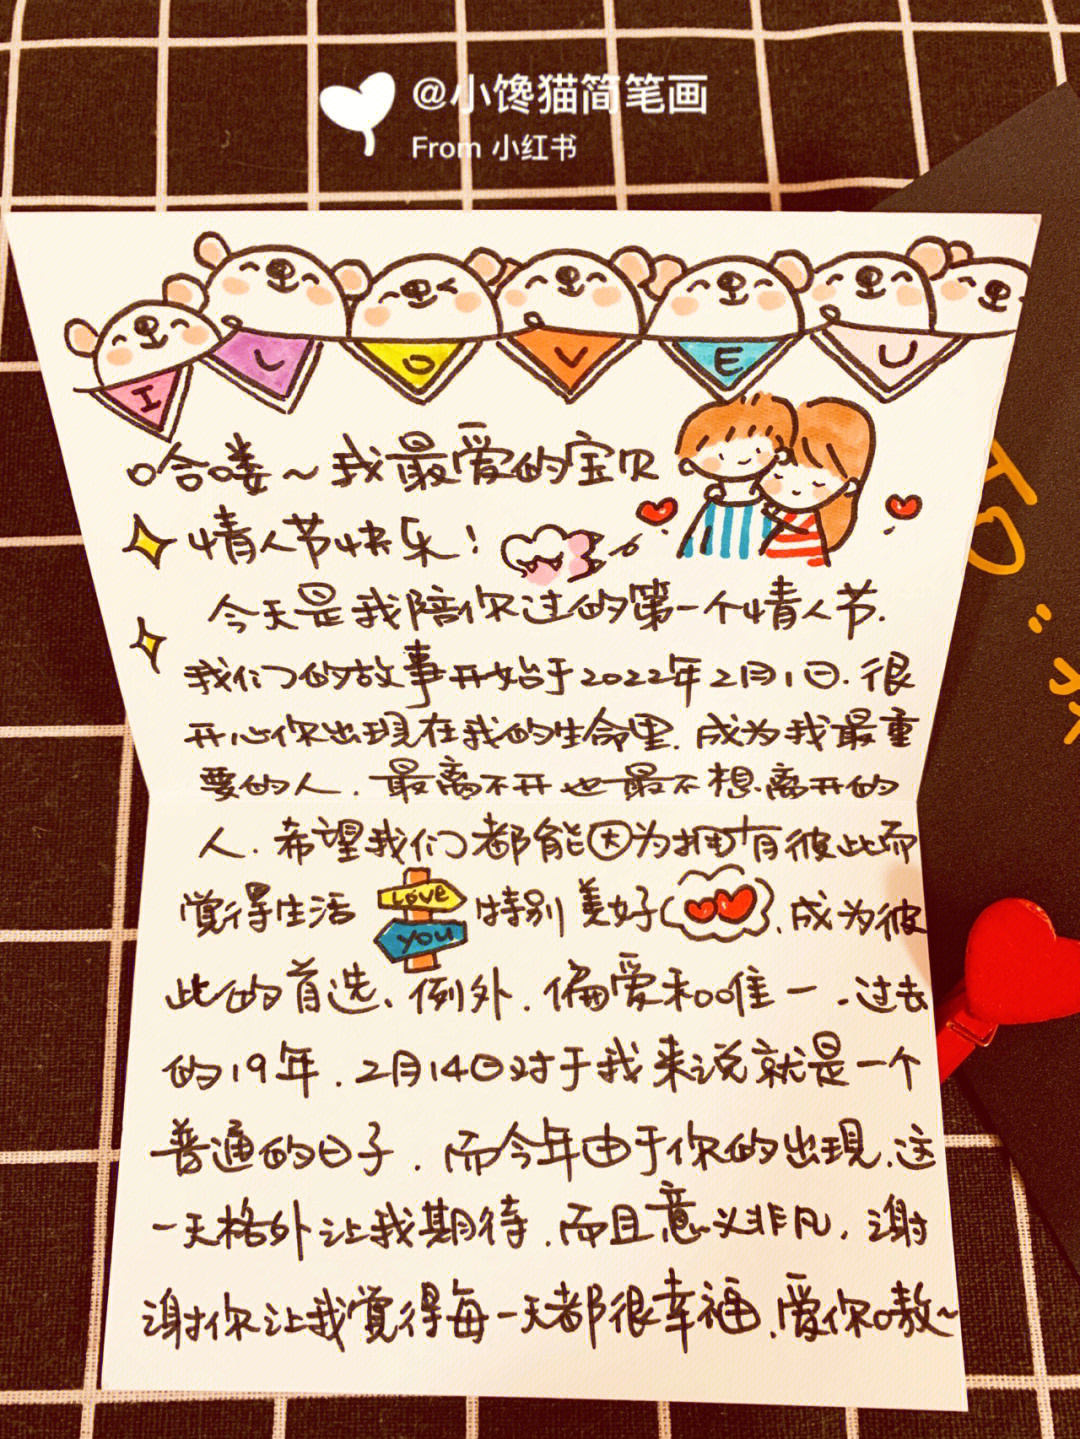 @小馋猫简笔画
From 小红书
I LOVE U
哈喽~我最爱的宝贝
情人节快乐！
今天是我陪你过的第一个情人节.
我们的故事开始于2022年2月1日.很
开心你出现在我的生命里.成为我最重
要的人.最离不开也最不想离开的
人.希望我们都能因为拥有彼此而
觉得生活 LOVE YOU 特别美好.成为彼
此的首选、例外.偏爱和唯一.过去
的19年.2月14日对于我来说就是一个
普通的日子.而今年由于你的出现.这
一天格外让我期待.而且意义非凡.谢
谢你让我觉得每一天都很幸福.爱你嗷~
TO